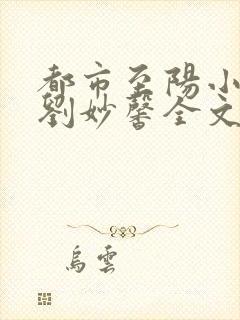 都市至陽小
劉妙馨全文
烏雲